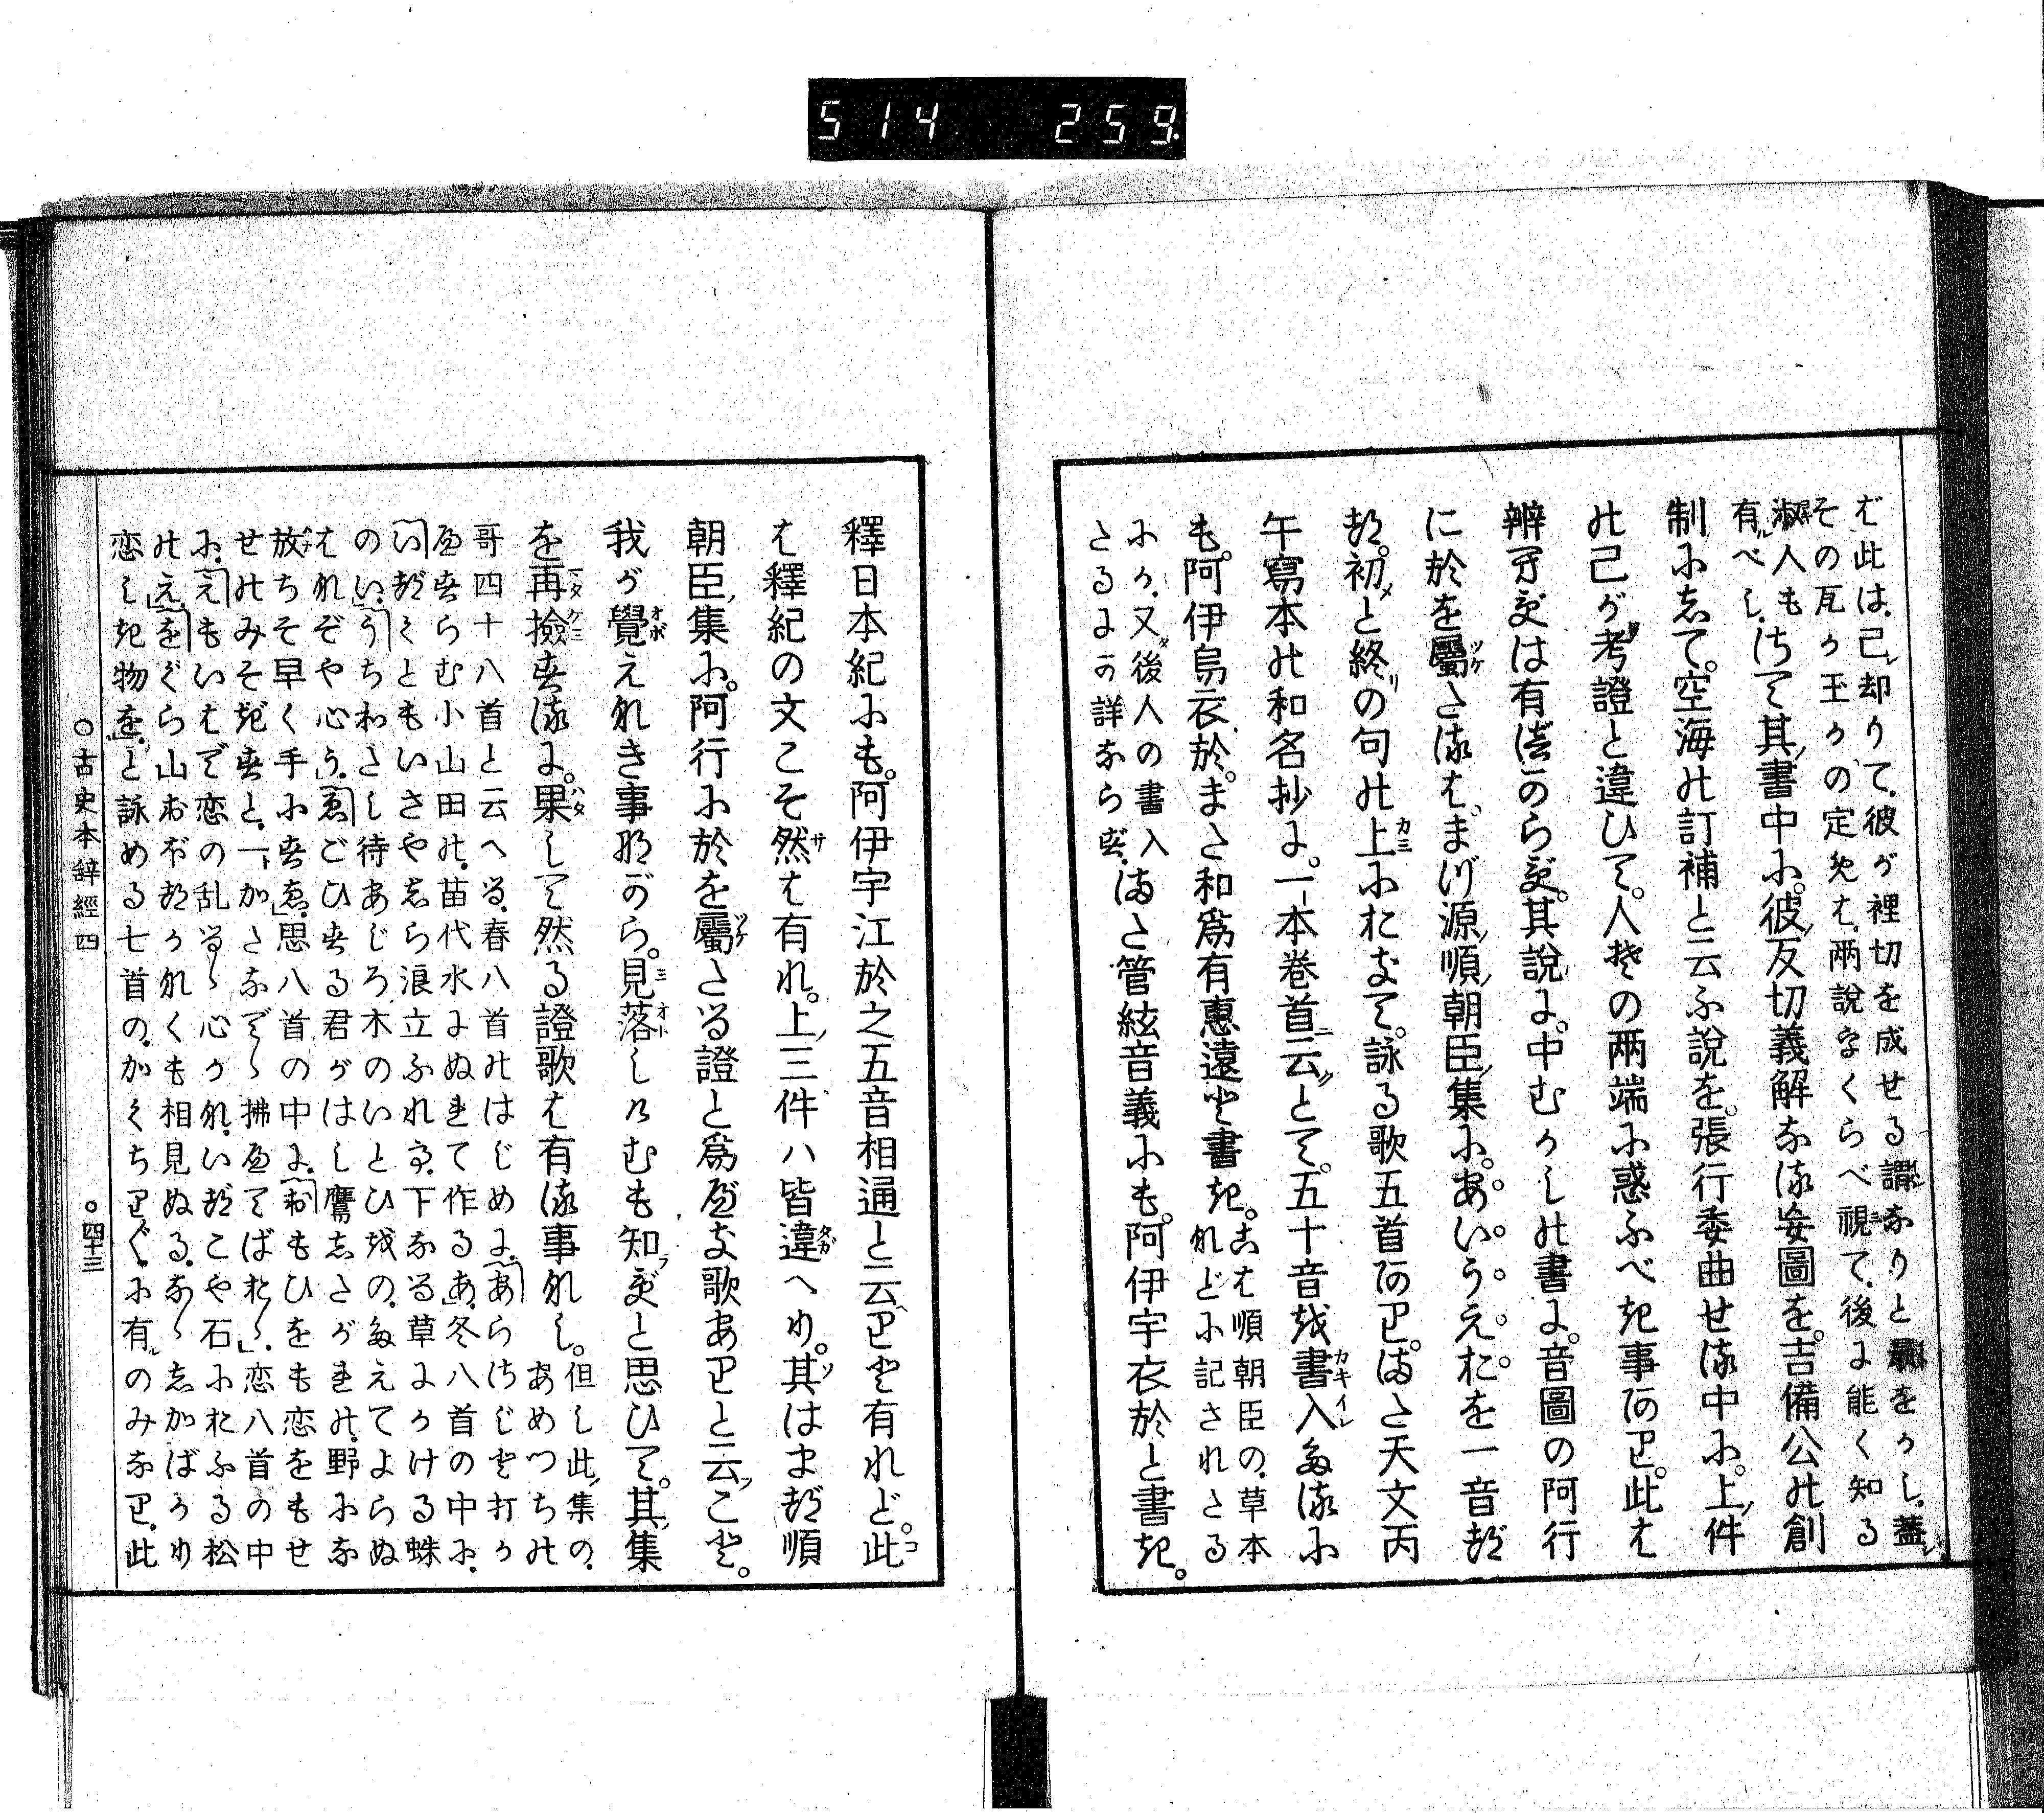 514 259
ば此は。己レ却りて。彼が裡切を成せる謂なりと
をかし。蓋シ
その瓦か玉かの定めは。兩說なくらべ視て。後に能く知る
淑人も
有べし。
さて其ノ書中に。彼ノ反切義解なる妄圖を。吉備公の創
制にして。空海の訂補と云ふ說を。張行委曲せる中に。上ノ件
の己が考證と違ひて。人その兩端に惑ふべき事あり。此は
辨までは有べからず。其說に。中むかしの書に。音圖の阿行
に於を屬たるは。まづ源ノ順ノ朝臣ノ集に。あ。い。う。え。お。を一音づ
つ。初メと終リの句の上におきて。詠る歌五首あり。また天文丙
午寫本の和名抄に。一本卷首ニ云ツとて。五十音を書入たるに
も。阿伊烏衣於。また和爲有惠遠と書き。
こは順朝臣の。草本
れどに記されたる
にか。又タ後人の書入
たるにか詳ならず。
また管絃音義にも。阿伊宇衣於と書き。
釋日本紀にも。阿伊宇江於之五音相通と云ヘりと有れど。此
は釋紀の文こそ然は有れ。上ノ三件ハ皆違へり。其はまづ順
朝臣ノ集に。阿行に於を屬たる證と爲べき歌ありと云フこと。
我が覺えなき事ながら。見落しけむも知ラずと思ひて。其ノ集
を再撿するに。果して然る證歌は有る事なし。
但し此ノ集の。
あめつちの
哥四十八首と云へる。春八首のはじめに。「あらさじと打か
へすらむ小山田の。苗代水にぬれて作るあ」。冬八首の中に。
「いづくともいさやしら浪立ふれる。下なる草にかける蛛
のい」。「うちわたし待あじろ木のいとひをの。たえてよらぬ
はなぞや心う」。「ゑごひする君がはし鷹志たがれの。野にな
放ちそ早く手にすゑ」。思八首の中に。「おもひをも恋をもせ
せのみそぎすと。一ト かたなでゝ拂へてばおゝ」。恋八首の中
に。「えもいはで恋の乱るゝ心かな。いづこや石におふる松
のえ」。「をぐら山おぼつかなくも相見ぬる。なゝ志かばかり
恋しき物を」。と詠める七首の。かくちり〲に有ルのみなり。此
○古史本辭經四
○四十三